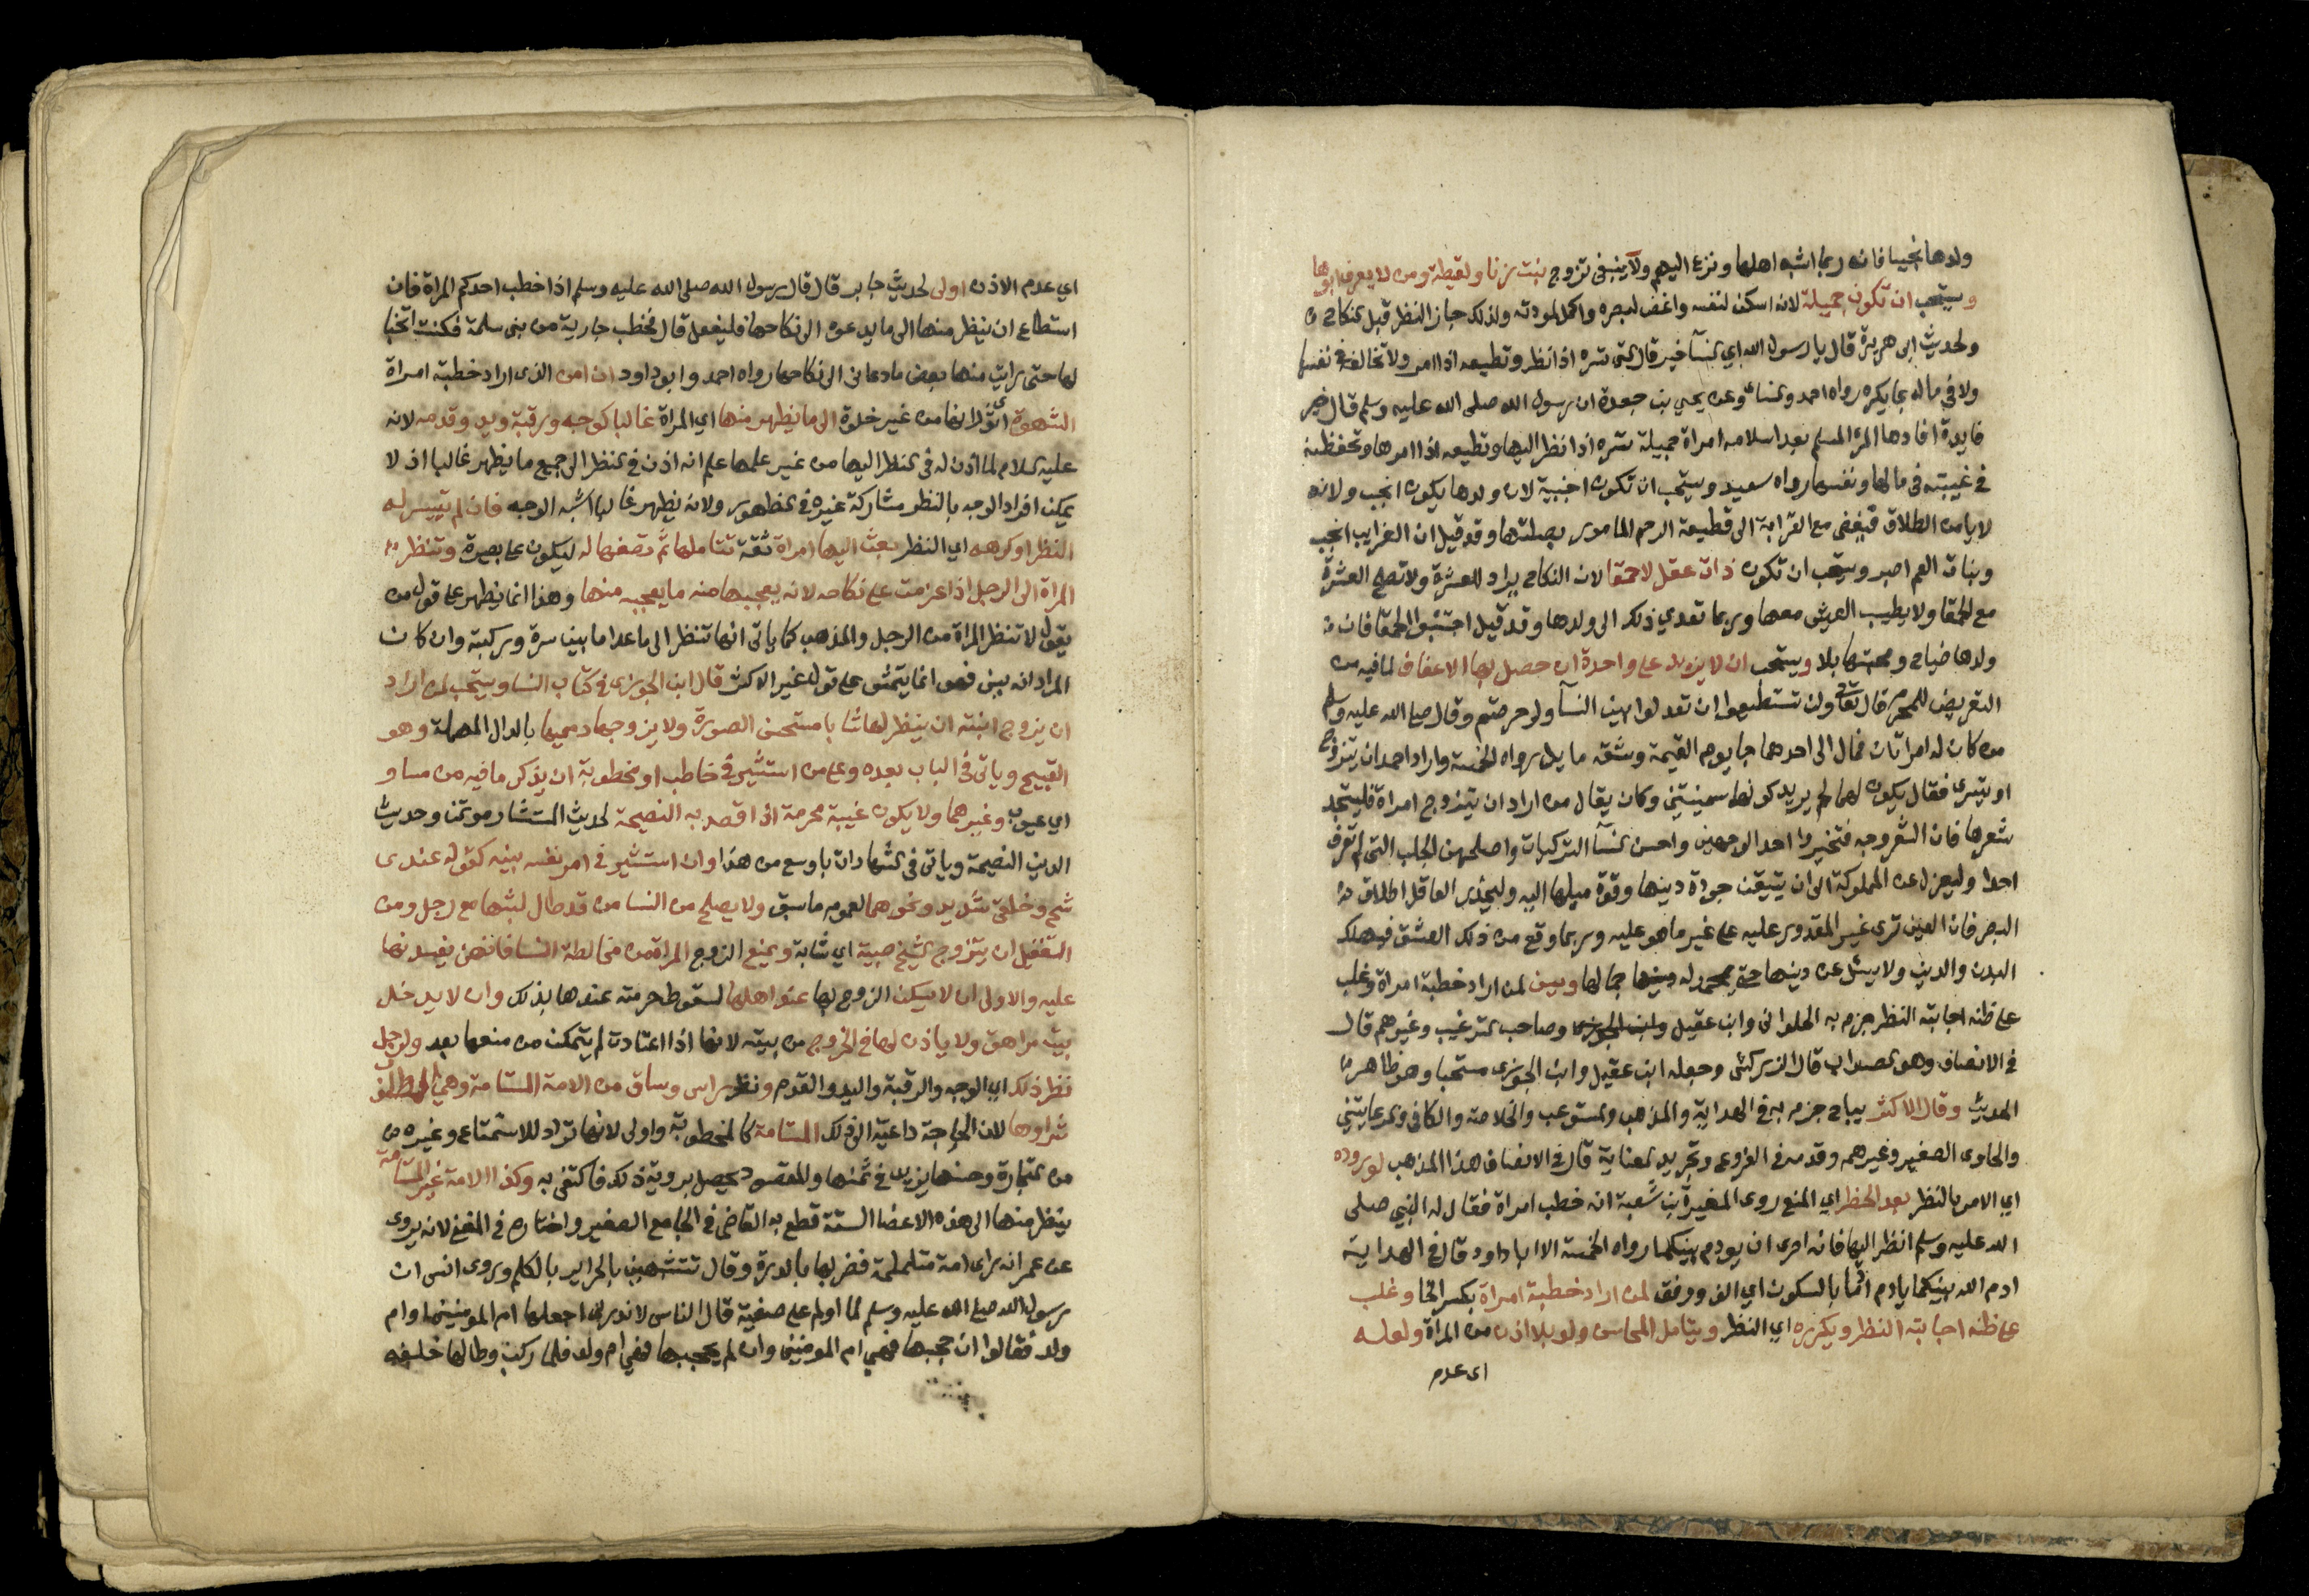 ولدها نجيبا فانه ربما اشبه اهلها ونزع اليهم ولا ينبغي تزوج بنت زنا ولقيطة ومن لا يعرف ابوها
ويستحب ان تكون جميلة لانه اسكن لنفسه واغض لبصره واكمل لمودته ولذلك جاز النظر قبل النكاح
ولحديث ابي هريرة قال يا رسول الله اي النسآ خير قال التي تسره اذا نظر وتطيعه اذا امر ولا تخالفه في نفسها
ولا في ماله بما يكره رواه احمد والنسائي وعن يحيى بن جعدة ان رسول الله صلى الله عليه وسلم قال خير
فايدة افادها المرء المسلم بعد اسلامه امراة جميلة تسره اذا نظر اليها وتطيعه اذا امرها وتحفظه
في غيبته في مالها ونفسها رواه سعيد ويستحب ان تكون اجنبية لان ولدها يكون انجب ولانه
لا يامن الطلاق فيفضي مع القرابة الى قطيعة الرحم المامور بصلتها وقد قيل ان الغرايب انجب
وبنات العم اصبر ويستحب ان تكون ذات عقل لا حمقا لان النكاح يراد للعشرة ولا تصلح العشرة
مع الحمقا ولا يطيب العيش معها وربما تعدي ذلك الى ولدها وقد قيل اجتنبوا الحمقا فان
ولدها ضياع وصحبتها بلا ويستحب ان لا يزيد على واحدة ان حصل بها الاعفاف لما فيه من
التعريض للمحرم قال تعالى ولن تستطيعوا ان تعدلوا بين النسآ ولو حرصتم وقال صلى الله عليه وسلم
من كان له امراتان فمال الى احدهما جا يوم القيمة وشقه مايل رواه الخمسة واراد احمد ان يتزوج
او يتسرى فقال يكون لهما لحم يريد كونهما سمينتين وكان يقال من اراد ان يتزوج امراة فليستجد
شعرها فان الشعر وجه فتخيروا احد الوجهين واحسن النسآ التركيات واصلحهن الجلب التي لم تعرف
احدا وليعزل عن المملوكة الى ان يتيقن جودة دينها وقوة ميلها اليه وليحذر العاقل اطلاق
البصر فان العين ترى غير المقدور عليه على غير ما هو عليه وربما وقع من ذلك العشق فيهلك
البدن والدين ولا يسئل عن دينها حتى يحمد له جمالها ويسن لمن اراد خطبة امراة وغلب
على ظنه اجابته النظر جزم به الحلواني وابن عقيل وابن الجوزي وصاحب الترغيب وغيرهم قال
في الانصاف وهو الصواب قال الزركشي وجعله ابن عقيل وابن الجوزي مستحبا وهو ظاهر
الحديث وقال الاكثر يباح جزم به في الهداية والمذهب والمستوعب والخلاصة والكافي والرعايتين
والحاوى الصغير وغيرهم وقدمه في الفروع وتجريد العناية قال في الانصاف هذا المذهب لوروده
اي الامر بالنظر بعد الحظر اي المنع روى المغيرة بن شعبة انه خطب امراة فقال له النبي صلى
الله عليه وسلم انظر اليها فانه احرى ان يودم بينكما رواه الخمسة الا ابا داود قال في الهداية
ادم الله بينكما يادم ادما بالسكون اي الف ووفق لمن اراد خطبة امراة بكسر الخا وغلب
على ظنه اجابته النظر ويكرره اي النظر ويتامل المحاسن ولو بلا اذن من المراة ولعله
اى عدم
اي عدم الاذن اولى لحديث جابر قال قال رسول الله صلى الله عليه وسلم اذا خطب احدكم المراة فان
استطاع ان ينظر منها الى ما يدعوه الى نكاحها فليفعل قال فخطب جارية من بني سلمة فكنت اتخبا
لها حتى رايت منها بعض ما دعاني الى نكاحها رواه احمد وابو داود ان امن الذى اراد خطبة امراة
الشهوة اي ثورانها من غير خلوة الى ما يظهر منها اي المراة غالبا كوجه ورقبة ويد وقدم لانه
عليه السلام لما اذن له في النظر اليها من غير علمها علم انه اذن في النظر الى جميع ما يظهر غالبا اذ لا
يمكن افراد الوجه بالنظر مع مشاركة غيره في الظهور ولانه يظهر غالبا اشبه الوجه فان لم يتيسر له
النظر او كرهه اي النظر بعث اليها امراة ثقة تتاملها ثم تصفها له ليكون على بصيرة وتنظر
المراة الى الرجل اذا عزمت على نكاحه لانه يعجبها منه ما يعجبه منها وهذا انما يظهر على قول من
يقول لا تنظر المراة من الرجل والمذهب كما ياتى انها تنظر الى ما عدا ما بين سرة وركبة وان كان
المراد انه يسن فهو انما يتمشى على قول غير الاكثر قال ابن الجوزي في كتاب النسا ويستحب لمن اراد
ان يزوج ابنته ان ينظر لها شابا مستحسن الصورة ولا يزوجها دميما بالدال المهملة وهو
القبيح وياتى في الباب بعده وعلى من استشير في خاطب او مخطوبة ان يذكر ما فيه من مساو
اي عيوب وغيرهما ولا يكون غيبة محرمة اذا قصد به النصيحة لحديث المستشار موتمن وحديث
الدين النصيحة وياتى في الشهادات باوسع من هذا وان استشير في امر نفسه بينه كقوله عندى
شح وخلقى شديد ونحوهما لعموم ما سبق ولا يصلح من النسا من قد طال لبثها مع رجل ومن
التغفيل ان يتزوج الشيخ صبية اي شابة ويمنع الزوج المراة من مخالطة النسا فانهن يفسدنها
عليه والاولى ان لا يسكن الزوج بها عند اهلها لسقوط حرمته عندها بذلك وان لا يدخل
بيته مراهق ولا ياذن لها في الخروج من بيته لانها اذا اعتادت لم يتمكن من منعها بعد ولرجل
نظر ذلك اي الوجه والرقبة واليد والقدم ونظر راس وساق من الامة المستامة وهي المطلوب
شراوها لان الحاجة داعية الى ذلك المستامة كالمخطوبة واولى لانها تراد للاستمتاع وغيره
من التجارة وحسنها يزيد في ثمنها والمقصود يحصل بروية ذلك فاكتفى به وكذا الامة غير المستامة
ينظر منها الى هذه الاعضا الستة قطع به القاضى في الجامع الصغير واختاره في المغنى لانه يروى
عن عمر انه راى امة متلملمة فضربها بالدرة وقال تتشبهين بالحراير يا لكاع وروى انس ان
رسول الله صلى الله عليه وسلم لما اولم على صفية قال الناس لا ندرى اجعلها ام المومنين او ام
ولد فقالوا ان حجبها فهي ام المومنين وان لم يحجبها فهي ام ولد فلما ركب وطا لها خلفه